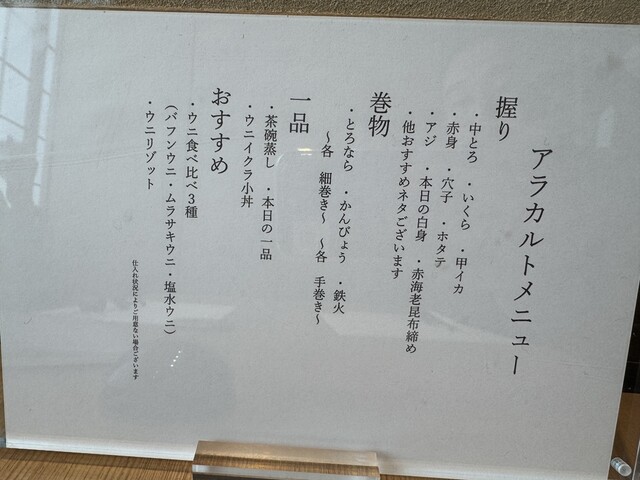 アラカルトメニュー
握り
・中とろ ・いくら ・甲イカ
・赤身 ・穴子 ・ホタテ
・アジ ・本日の白身 ・赤海老昆布締め
・他おすすめネタございます
巻物
・とろなら ・かんぴょう ・鉄火
〜各 細巻き〜 〜各 手巻き〜
一品
・茶碗蒸し ・本日の一品
・ウニイクラ小丼
おすすめ
・ウニ食べ比べ3種
（バフンウニ・ムラサキウニ・塩水ウニ）
・ウニリゾット
仕入れ状況によりご用意ない場合ございます